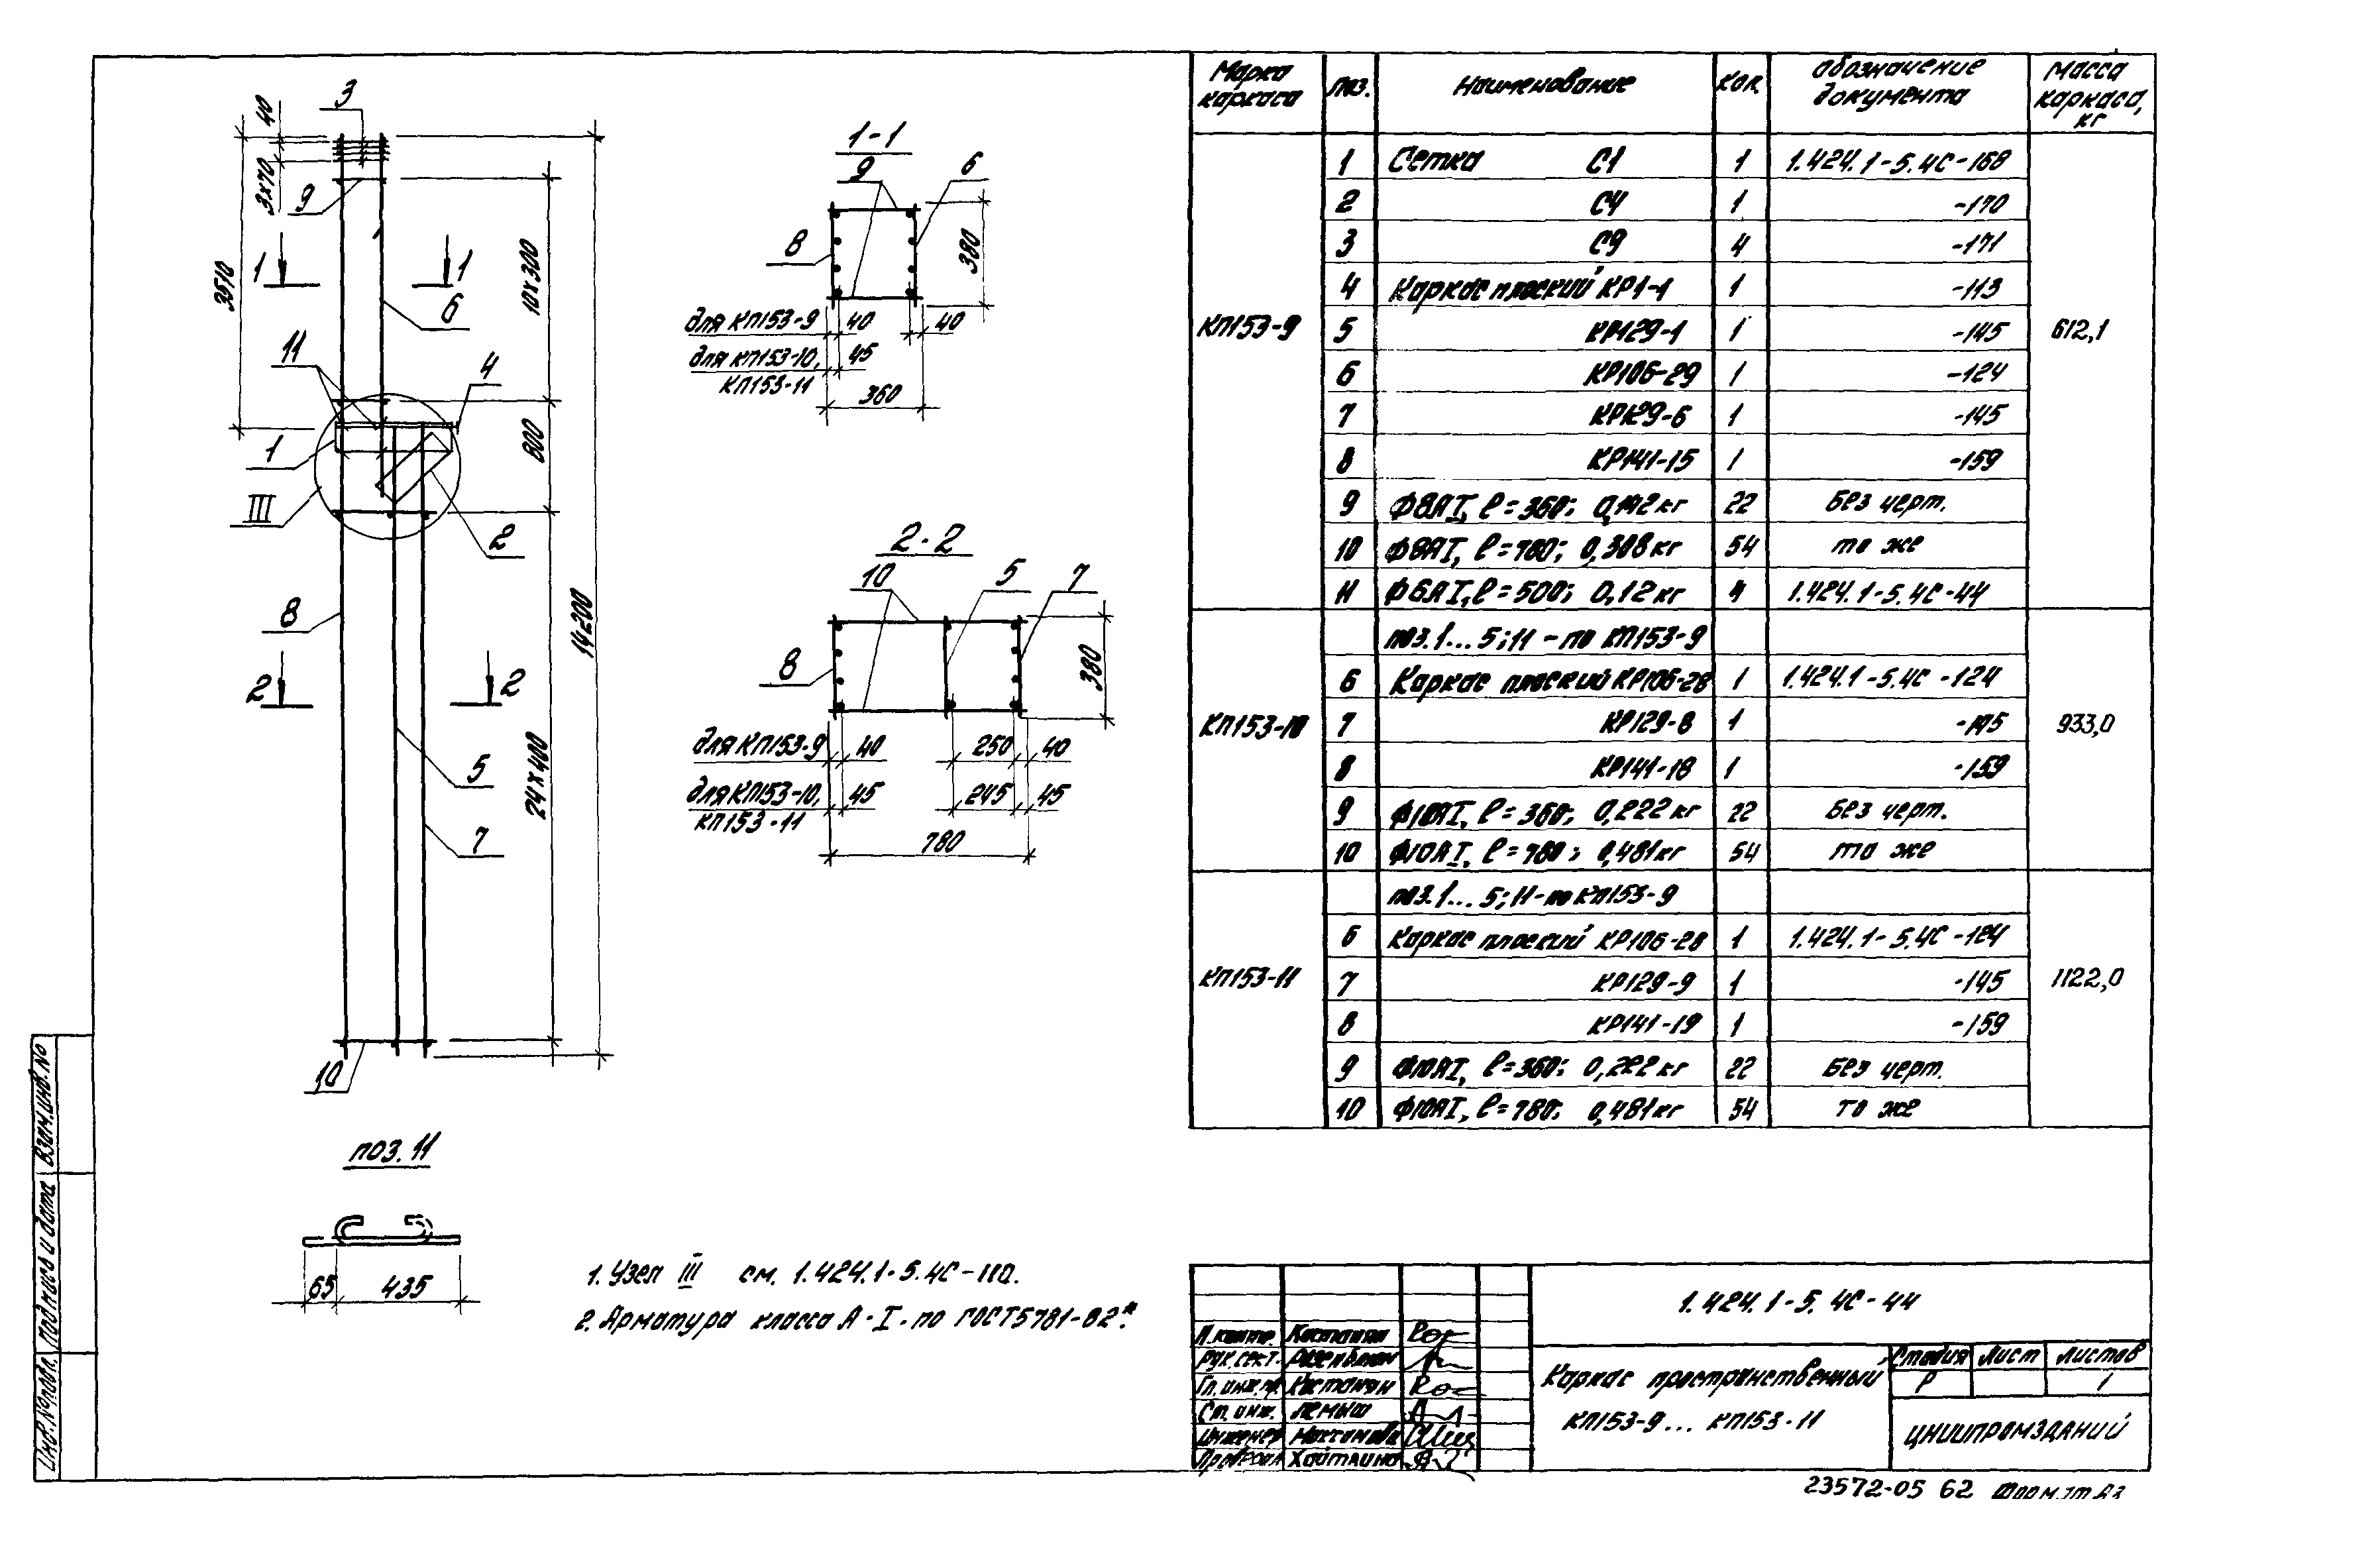 Марка каркаса | Поз. | Наименование | Кол. | Обозначение документа | Масса каркаса, кг
КП153-9 | 612,1
1 | Сетка С1 | 1 | 1.424.1-5.4С-168
2 | С4 | 1 | -170
3 | С9 | 4 | -171
4 | Каркас плоский КР1-1 | 1 | -113
5 | КР129-1 | 1 | -145
6 | КР106-29 | 1 | -124
7 | КР129-6 | 1 | -145
8 | КР141-15 | 1 | -159
9 | Ф8АI, ℓ=360; 0,142кг | 22 | Без черт.
10 | Ф8АI, ℓ=780; 0,308кг | 54 | то же
11 | Ф6АI, ℓ=500; 0,12кг | 4 | 1.424.1-5.4С-44
КП153-10 | 933,0
поз.1...5;11-по КП153-9
6 | Каркас плоский КР106-28 | 1 | 1.424.1-5.4С-124
7 | КР129-8 | 1 | -145
8 | КР141-18 | 1 | -159
9 | Ф10АI, ℓ=360; 0,222кг | 22 | Без черт.
10 | Ф10АI, ℓ=780; 0,481кг | 54 | то же
КП153-11 | 1122,0
поз.1...5;11-по КП153-9
6 | Каркас плоский КР106-28 | 1 | 1.424.1-5.4С-124
7 | КР129-9 | 1 | -145
8 | КР141-19 | 1 | -159
9 | Ф10АI, ℓ=360; 0,222кг | 22 | Без черт.
10 | Ф10АI, ℓ=780; 0,481кг | 54 | то же
3
40
3х70
9
3510
1
1
6
10х300
11
4
1
III
800
2
8
14200
2
2
5
24х400
7
10
1-1
9
6
8
380
для КП153-9
40
40
для КП153-10,
КП153-11
45
360
2-2
10
5
7
8
380
для КП153-9
40
250
40
для КП153-10,
КП153-11
45
245
45
780
поз.11
65
435
1. Узел III см. 1.424.1-5.4С-110.
2. Арматура класса А-I-по ГОСТ5781-82*.
1.424.1-5.4С-44
Н.контр. Костанян
Рук.сект. Розенблюм
Гл.инж.пр. Костанян
Ст.инж. Лемыш
Инженер
Проверил
Каркас пространственный
КП153-9... КП153-11
Стадия Лист Листов
Р 1
ЦНИИПРОМЗДАНИЙ
23572-05 62 Формат А3
Инв.№подл. Подпись и дата Взам.инв.№